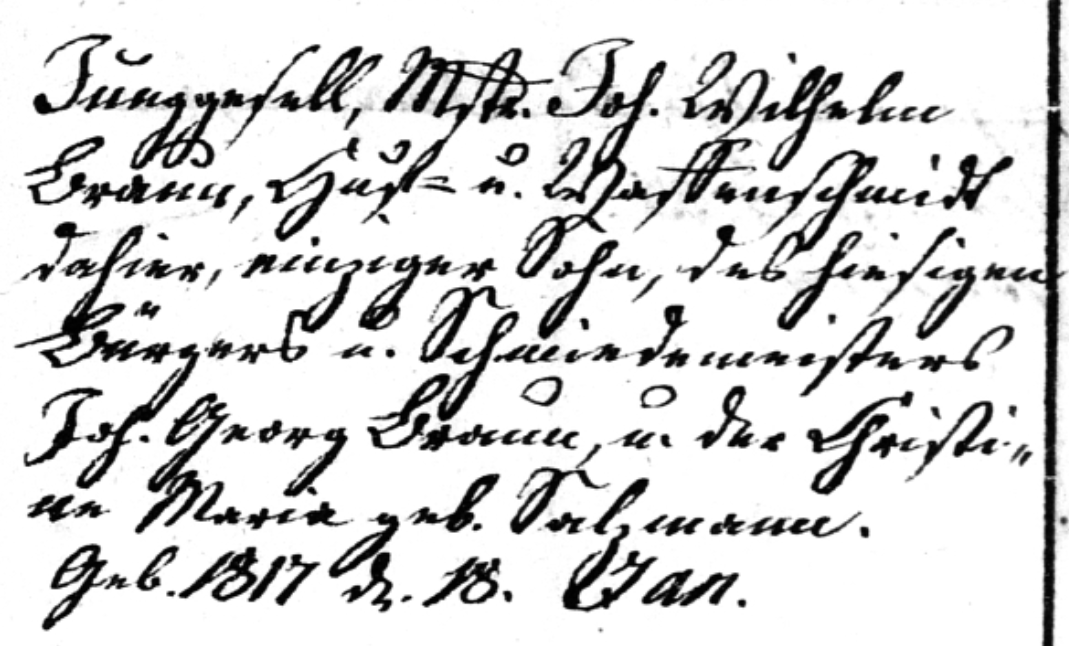 Junggesell, Mstr. Joh. Wilhelm
Braun, Huf- u. Waffenschmidt
dahier, einziger Sohn, des hiesigen
Bürgers u. Schmiedemeisters
Joh. Georg Braun, u. der Christi-
ne Maria geb. Salzmann.
Geb. 1817 d. 18. Jan.